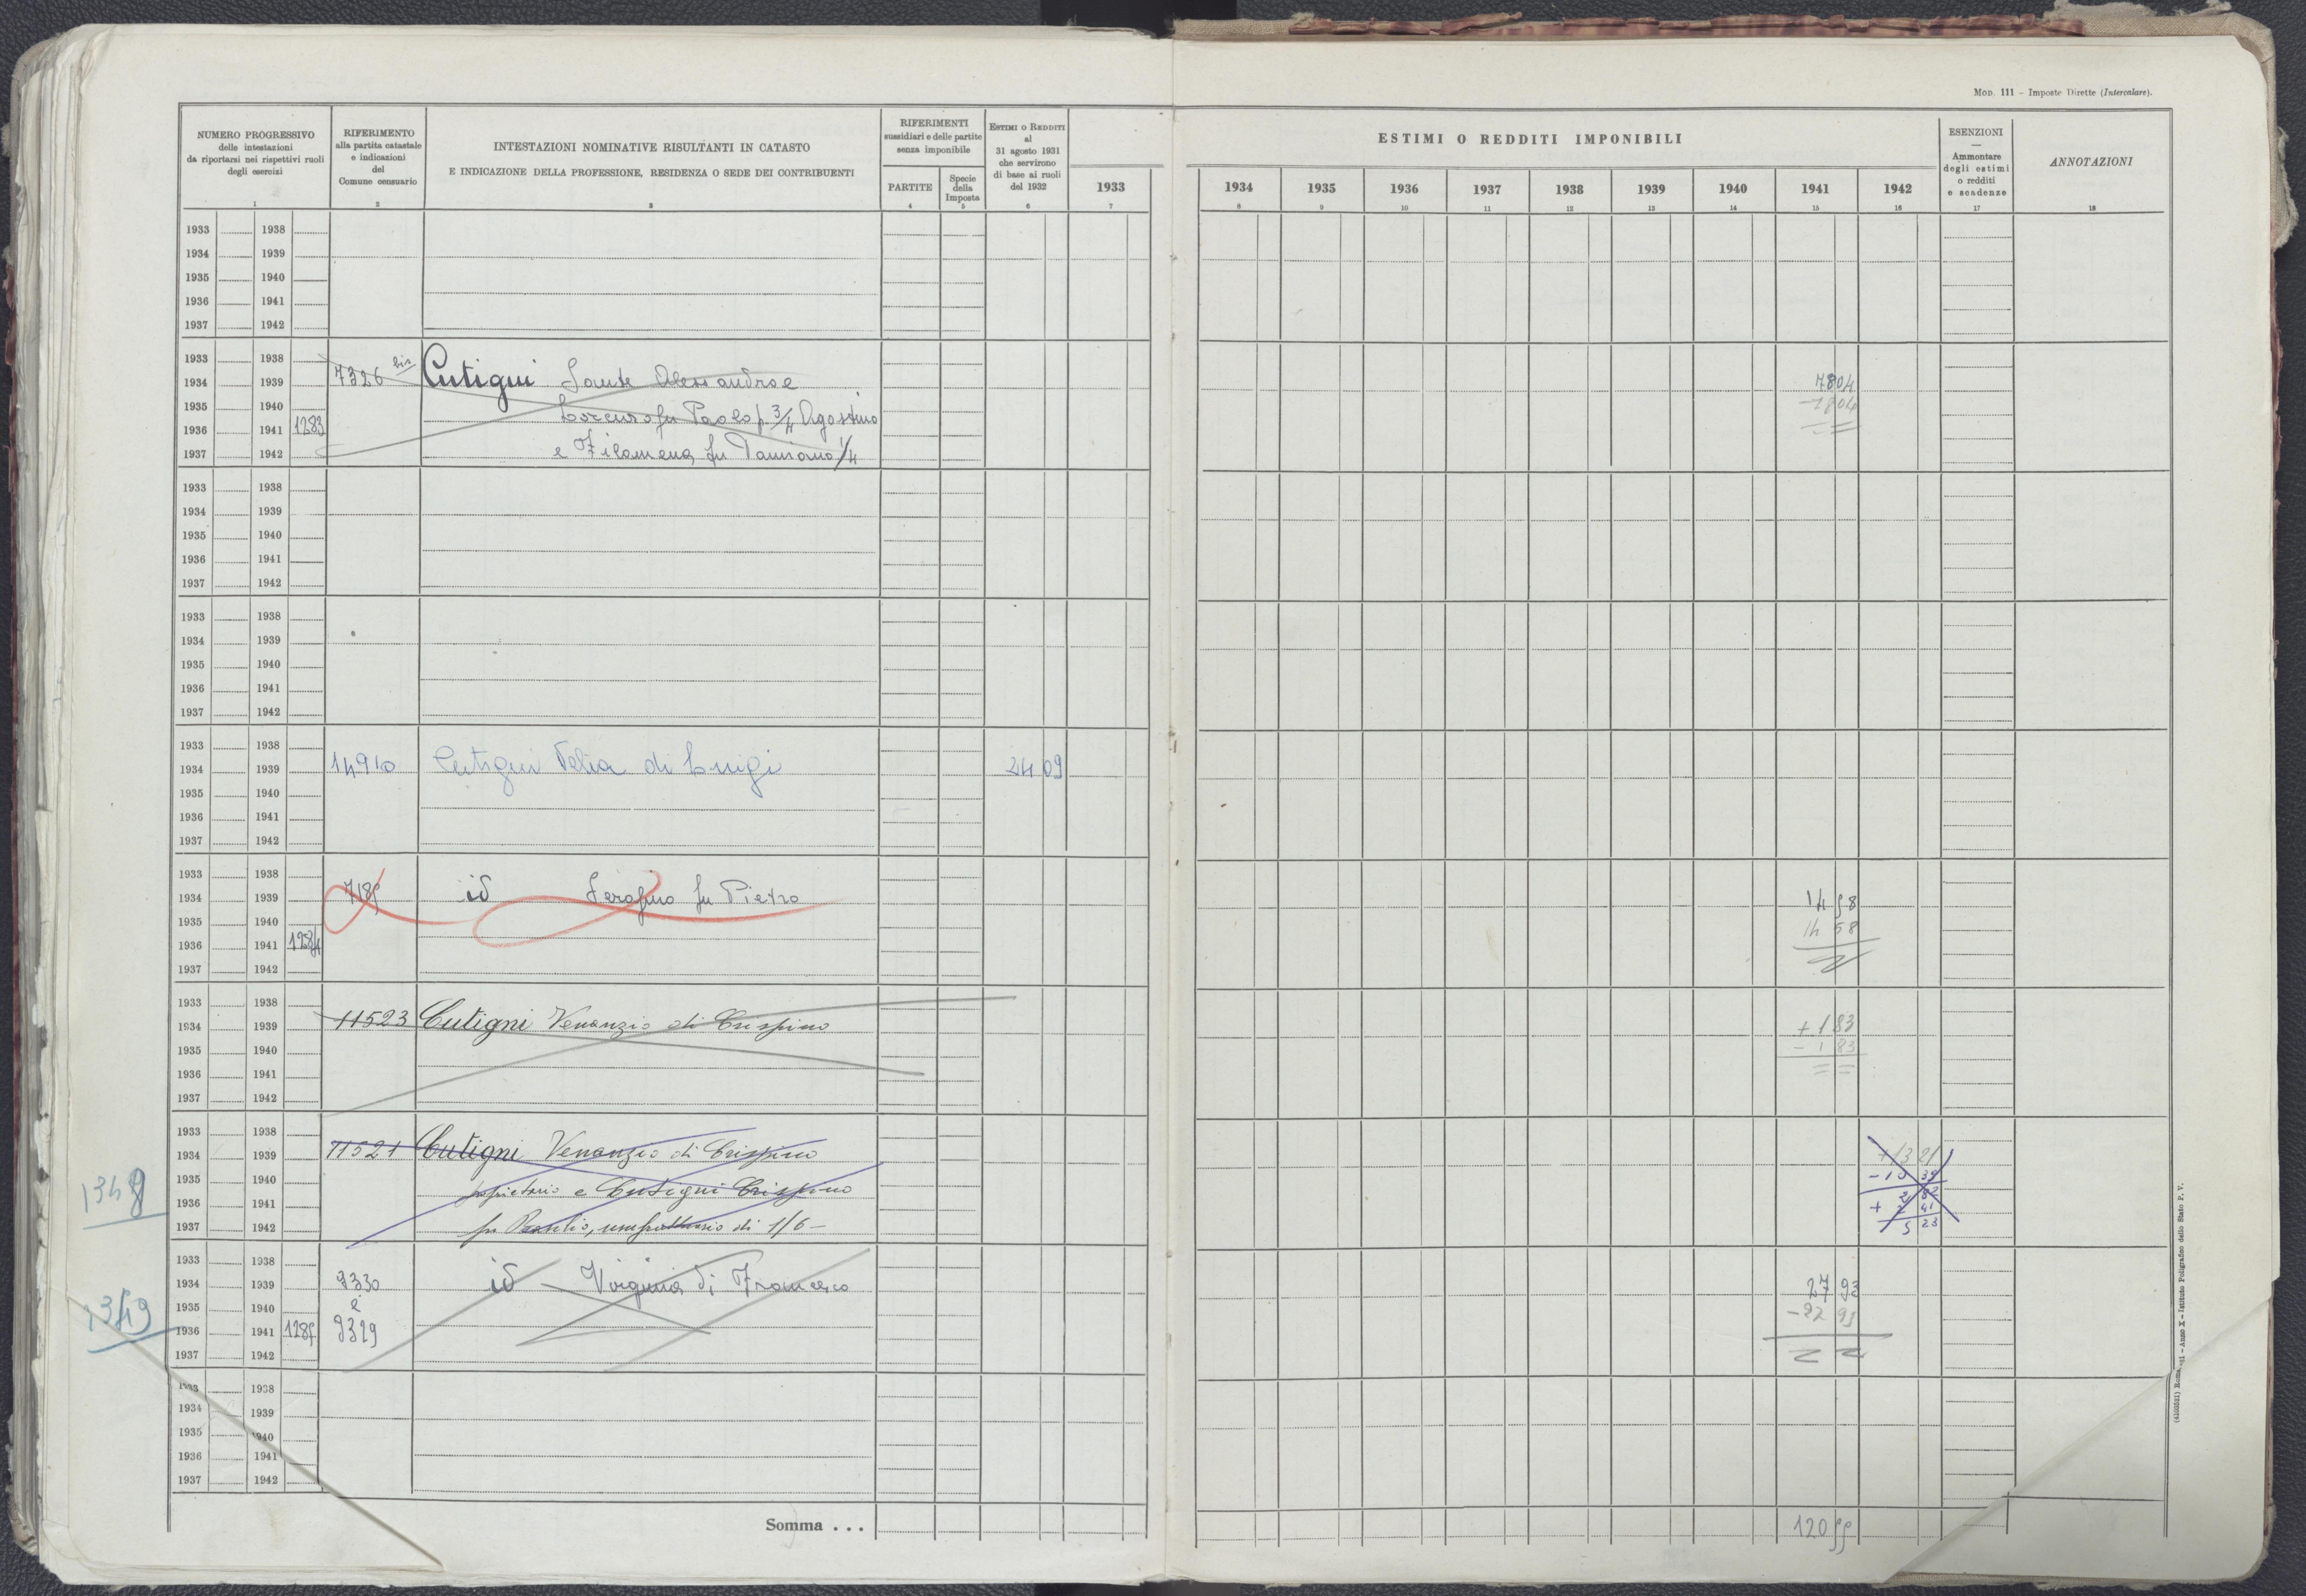 MOD. 111 – Imposte Dirette (Intercalare).
NUMERO PROGRESSIVO
delle intestazioni
da riportarsi nei rispettivi ruoli
degli esercizi
1
RIFERIMENTO
alla partita catastale
e indicazioni
del
Comune censuario
2
INTESTAZIONI NOMINATIVE RISULTANTI IN CATASTO
E INDICAZIONE DELLA PROFESSIONE, RESIDENZA O SEDE DEI CONTRIBUENTI
3
RIFERIMENTI
sussidiari e delle partite
senza imponibile
PARTITE
4
Specie
della
Imposta
5
ESTIMI O REDDITI
al
31 agosto 1931
che servirono
di base ai ruoli
del 1932
6
1933
7
ESTIMI O REDDITI IMPONIBILI
1934 1935 1936 1937 1938 1939 1940 1941 1942
8 9 10 11 12 13 14 15 16
ESENZIONI
—
Ammontare
degli estimi
o redditi
e scadenze
17
ANNOTAZIONI
18
1933 1938
1934 1939
1935 1940
1936 1941
1937 1942
1933 1938
1934 1939 7326 bis Cutigni Sante Alessandro e 7804
1935 1940 fu Paolo p. 3/4 Agostino -7804
1936 1941 1283
1937 1942 e Filomena fu Damiano 1/4
1933 1938
1934 1939
1935 1940
1936 1941
1937 1942
1933 1938
1934 1939
1935 1940
1936 1941
1937 1942
1933 1938
1934 1939 14910 Cutigni Velia di Luigi 24 09
1935 1940
1936 1941
1937 1942
1933 1938
1934 1939 7185 id Serafino fu Pietro 14 58
1935 1940 14 58
1936 1941 1284
1937 1942
1933 1938
1934 1939 11523 Cutigni Venanzio di Crispino + 1 83
1935 1940 - 1 83
1936 1941
1937 1942
1933 1938
1934 1939 11521 Cutigni Venanzio di Crispino +13 21
1348
1935 1940 proprietario e Cutigni Crispino -10 39
1936 1941 2 82
+ 2 41
1937 1942 fu usufruttuario di 1/6 – 5 23
1933 1938
1934 1939 9330 id Virginia di Francesco 27 93
1349
1935 1940 e
1936 1941 1285 9329 -27 93
1937 1942
1933 1938
1934 1939
1935 1940
1936 1941
1937 1942
Somma . . . 120 55